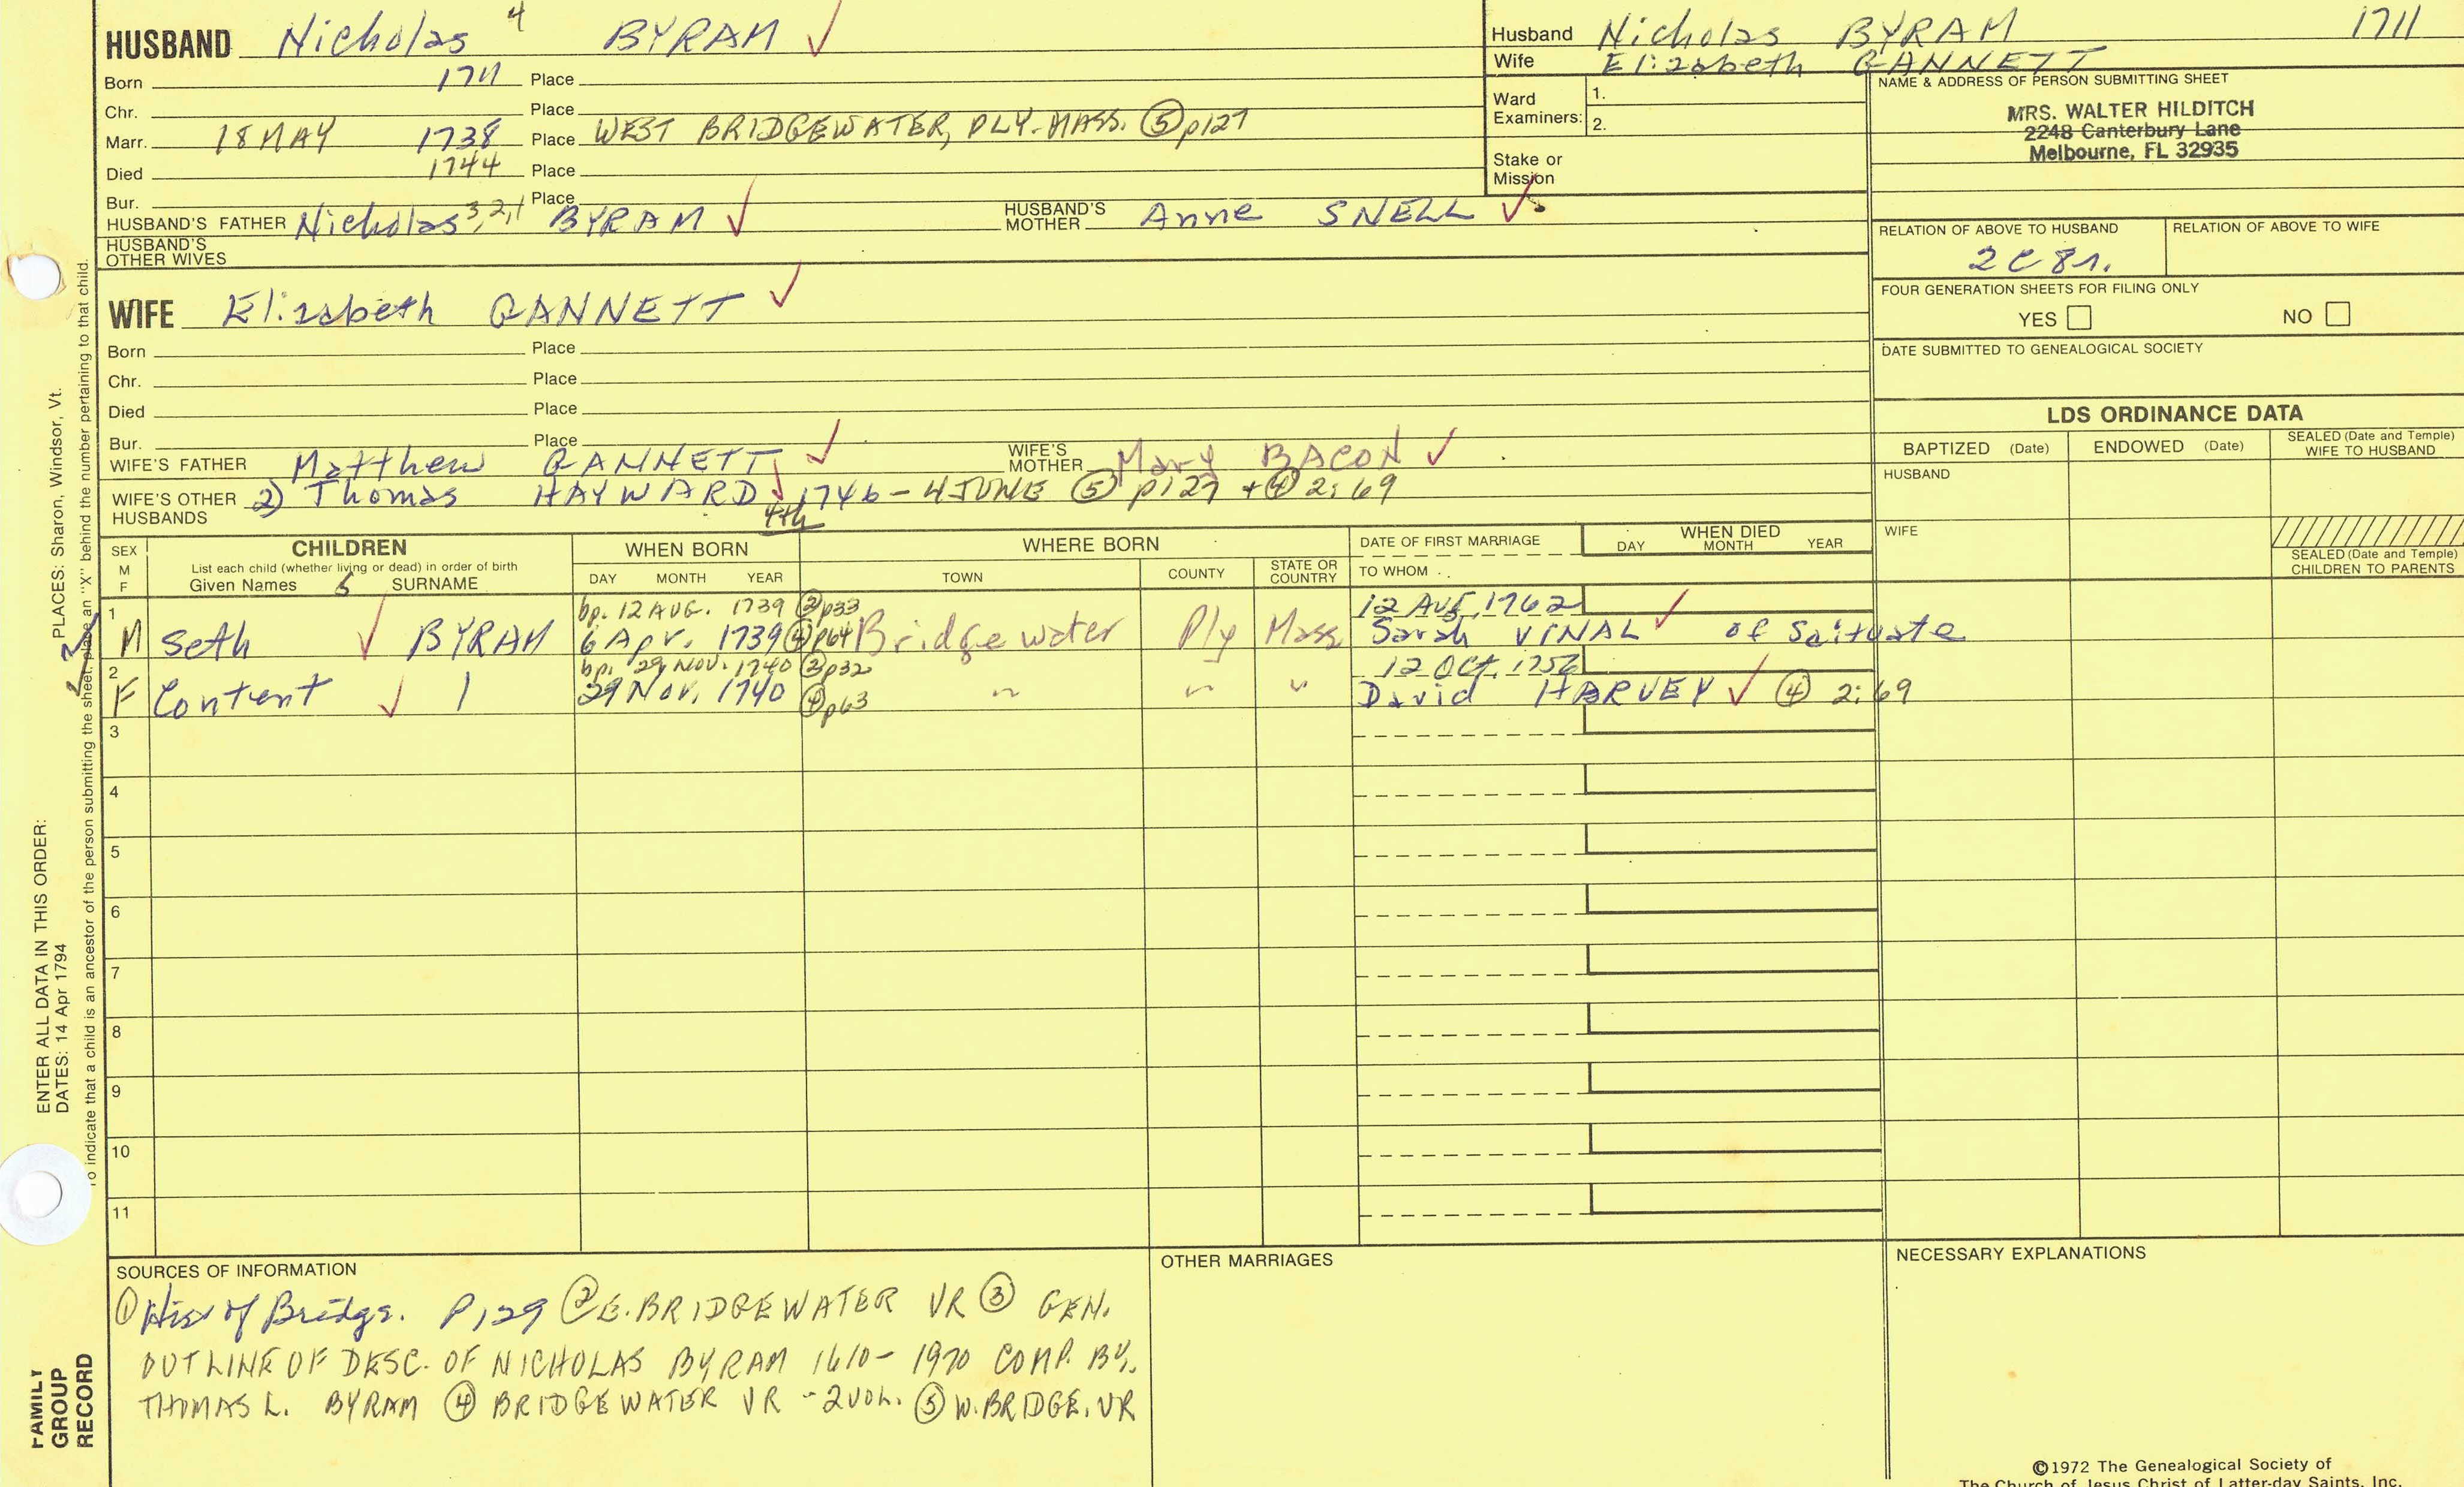 HUSBAND Nicholas 4 BYRAM ✓
Born 1711 Place
Chr. Place
Marr. 18 MAY 1738 Place WEST BRIDGEWATER, PLY-MASS. ⑤p127
Died 1744 Place
Bur. Place
HUSBAND'S FATHER Nicholas 3,2,1 BYRAM ✓ HUSBAND'S MOTHER Anne SNELL ✓
HUSBAND'S OTHER WIVES
Husband Nicholas BYRAM 1711
Wife Elizabeth GANNETT
Ward Examiners: 1.
2.
Stake or Mission
NAME & ADDRESS OF PERSON SUBMITTING SHEET
MRS. WALTER HILDITCH
2248 Canterbury Lane
Melbourne, FL 32935
RELATION OF ABOVE TO HUSBAND RELATION OF ABOVE TO WIFE
2C 8r.
FOUR GENERATION SHEETS FOR FILING ONLY
YES NO
DATE SUBMITTED TO GENEALOGICAL SOCIETY
WIFE Elizabeth GANNETT ✓
Born Place
Chr. Place
Died Place
Bur. Place
WIFE'S FATHER Matthew GANNETT ✓ WIFE'S MOTHER Mary BACON ✓
WIFE'S OTHER HUSBANDS 2) Thomas HAYWARD ✓ 1746 - 4 JUNE ⑤ p127 + ④ 2:69
4th
LDS ORDINANCE DATA
BAPTIZED (Date) ENDOWED (Date) SEALED (Date and Temple) WIFE TO HUSBAND
HUSBAND
WIFE
SEALED (Date and Temple) CHILDREN TO PARENTS
SEX M F
CHILDREN
List each child (whether living or dead) in order of birth
Given Names 5 SURNAME
WHEN BORN
DAY MONTH YEAR
WHERE BORN
TOWN COUNTY STATE OR COUNTRY
DATE OF FIRST MARRIAGE
TO WHOM
WHEN DIED
DAY MONTH YEAR
1 bp. 12 AUG. 1739 ②p33 12 Aug, 1762
M Seth ✓ BYRAM 6 Apr. 1739 ④p64 Bridgewater Ply Mass Sarah VINAL ✓ of Scituate
2 bp. 29 NOV. 1740 ②p32 12 Oct, 1756
F Content ✓ 29 Nov, 1740 ④p63 " " " David HARVEY ✓ ④ 2:69
3
4
5
6
7
8
9
10
11
SOURCES OF INFORMATION
① Hist of Bridge. P129 ② E. BRIDGEWATER VR ③ GEN.
OUTLINE OF DESC. OF NICHOLAS BYRAM 1610-1970 COMP. BY.
THOMAS L. BYRAM ④ BRIDGEWATER VR - 2 VOL. ⑤ W. BRIDGE. VR
OTHER MARRIAGES
NECESSARY EXPLANATIONS
©1972 The Genealogical Society of
The Church of Jesus Christ of Latter-day Saints, Inc.
ENTER ALL DATA IN THIS ORDER:
DATES: 14 Apr 1794 PLACES: Sharon, Windsor, Vt.
To indicate that a child is an ancestor of the person submitting the sheet, place an "X" behind the number pertaining to that child.
FAMILY
GROUP
RECORD